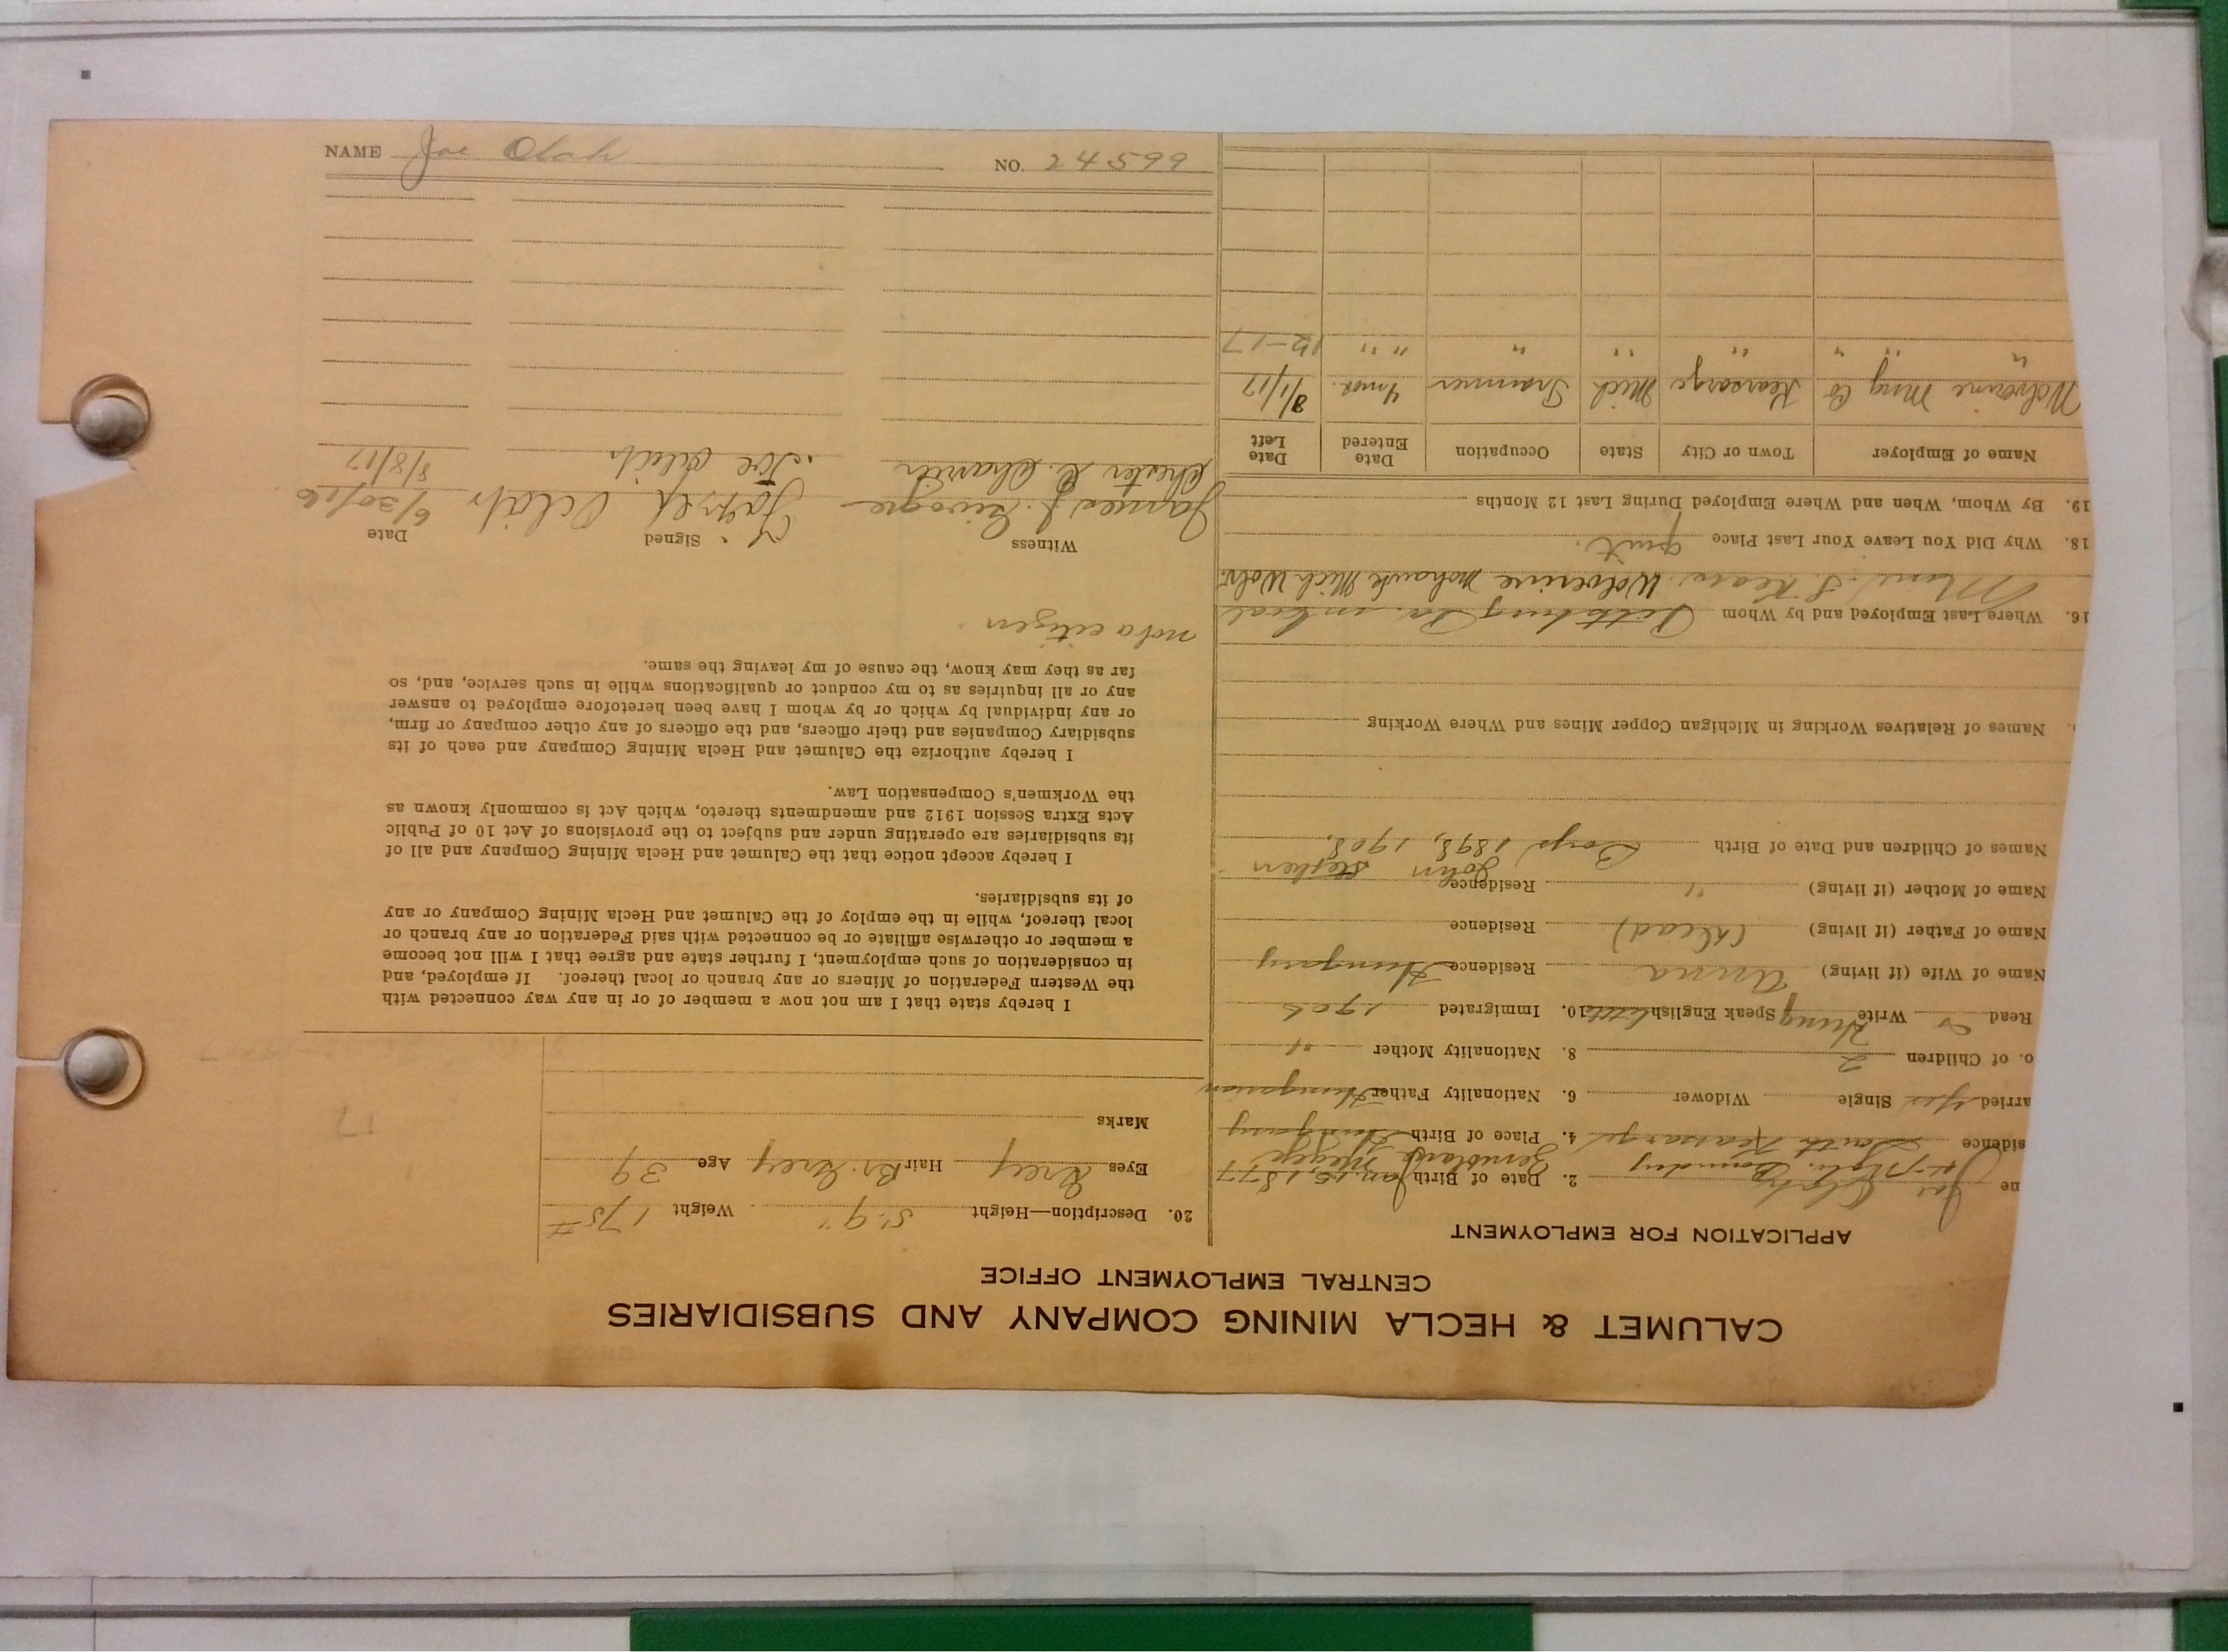 CALUMET & HECLA MINING COMPANY AND SUBSIDIARIES
CENTRAL EMPLOYMENT OFFICE
APPLICATION FOR EMPLOYMENT
ne Joe Olah 2. Date of Birth Jan. 15, 1877
sidence South Kearsarge 4. Place of Birth Hungary
arried Yes Single Widower 6. Nationality Father Hungarian
o. of Children 2 8. Nationality Mother "
Read Write Hung Speak English little 10. Immigrated 1906
Name of Wife (if living) Anna Residence Hungary
Name of Father (if living) (dead) Residence
Name of Mother (if living) " Residence
John Stephen
Names of Children and Date of Birth Boys 1898, 1908.
Names of Relatives Working in Michigan Copper Mines and Where Working
16. Where Last Employed and by Whom Pittsburg Pa. in Coal
Mine S. Kears. Wolverine Mohawk Mich Wolv.
18. Why Did You Leave Your Last Place quit.
19. By Whom, When and Where Employed During Last 12 Months
Name of Employer Town or City State Occupation Date Entered Date Left
Wolverine Ming Co Kearsarge Mich Trammer 4 mos. 8/1/17
" " " " " " " " 12-1-17
20. Description—Height 5'-9" Weight 175#
Eyes Grey Hair Br. Grey Age 39
Marks
17
I hereby state that I am not now a member of or in any way connected with
the Western Federation of Miners or any branch or local thereof. If employed, and
in consideration of such employment, I further state and agree that I will not become
a member or otherwise affiliate or be connected with said Federation or any branch or
local thereof, while in the employ of the Calumet and Hecla Mining Company or any
of its subsidiaries.
I hereby accept notice that the Calumet and Hecla Mining Company and all of
its subsidiaries are operating under and subject to the provisions of Act 10 of Public
Acts Extra Session 1912 and amendments thereto, which Act is commonly known as
the Workmen's Compensation Law.
I hereby authorize the Calumet and Hecla Mining Company and each of its
subsidiary Companies and their officers, and the officers of any other company or firm,
or any individual by which or by whom I have been heretofore employed to answer
any or all inquiries as to my conduct or qualifications while in such service, and, so
far as they may know, the cause of my leaving the same.
not a citizen
Witness Signed Date
James J. 6/30/16
Chester Joe 8/8/17
NAME Joe Olah NO. 24599